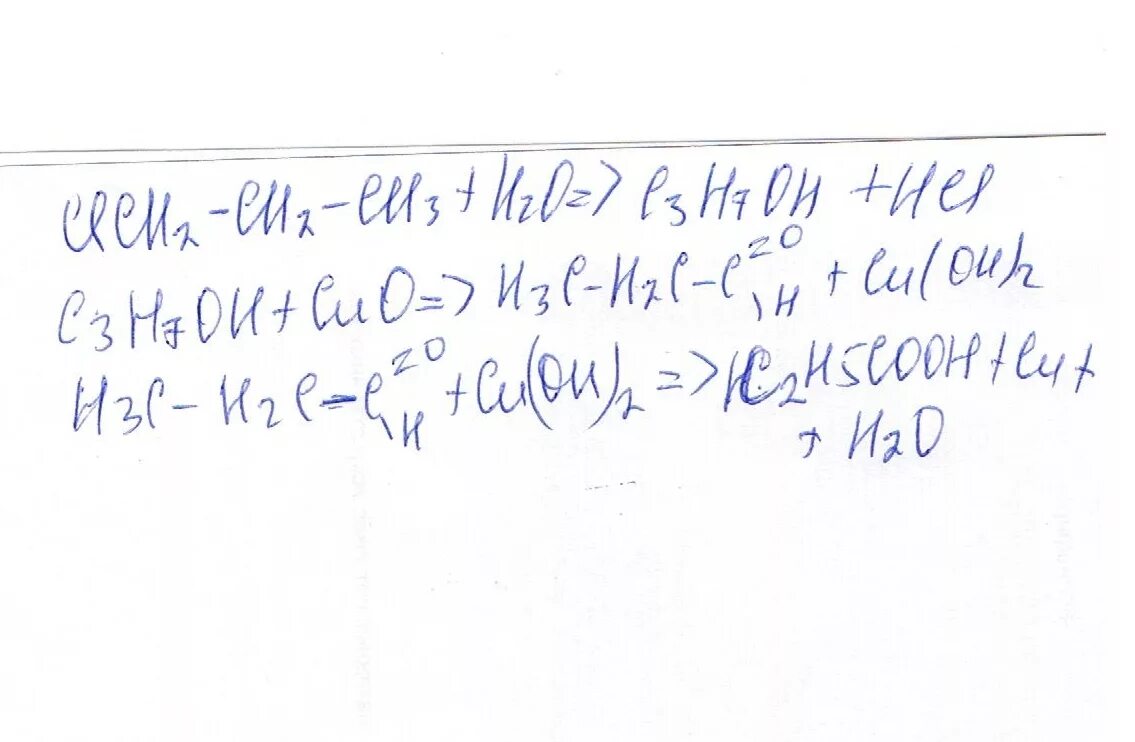 ClCH2-CH2-CH3+H2O=>C3H7OH +HCl
C3H7OH+CuO=>H3C-H2C-C=O\H+Cu(OH)2
H3C-H2C-C=O\H+Cu(OH)2=>C2H5COOH+Cu+
+H2O